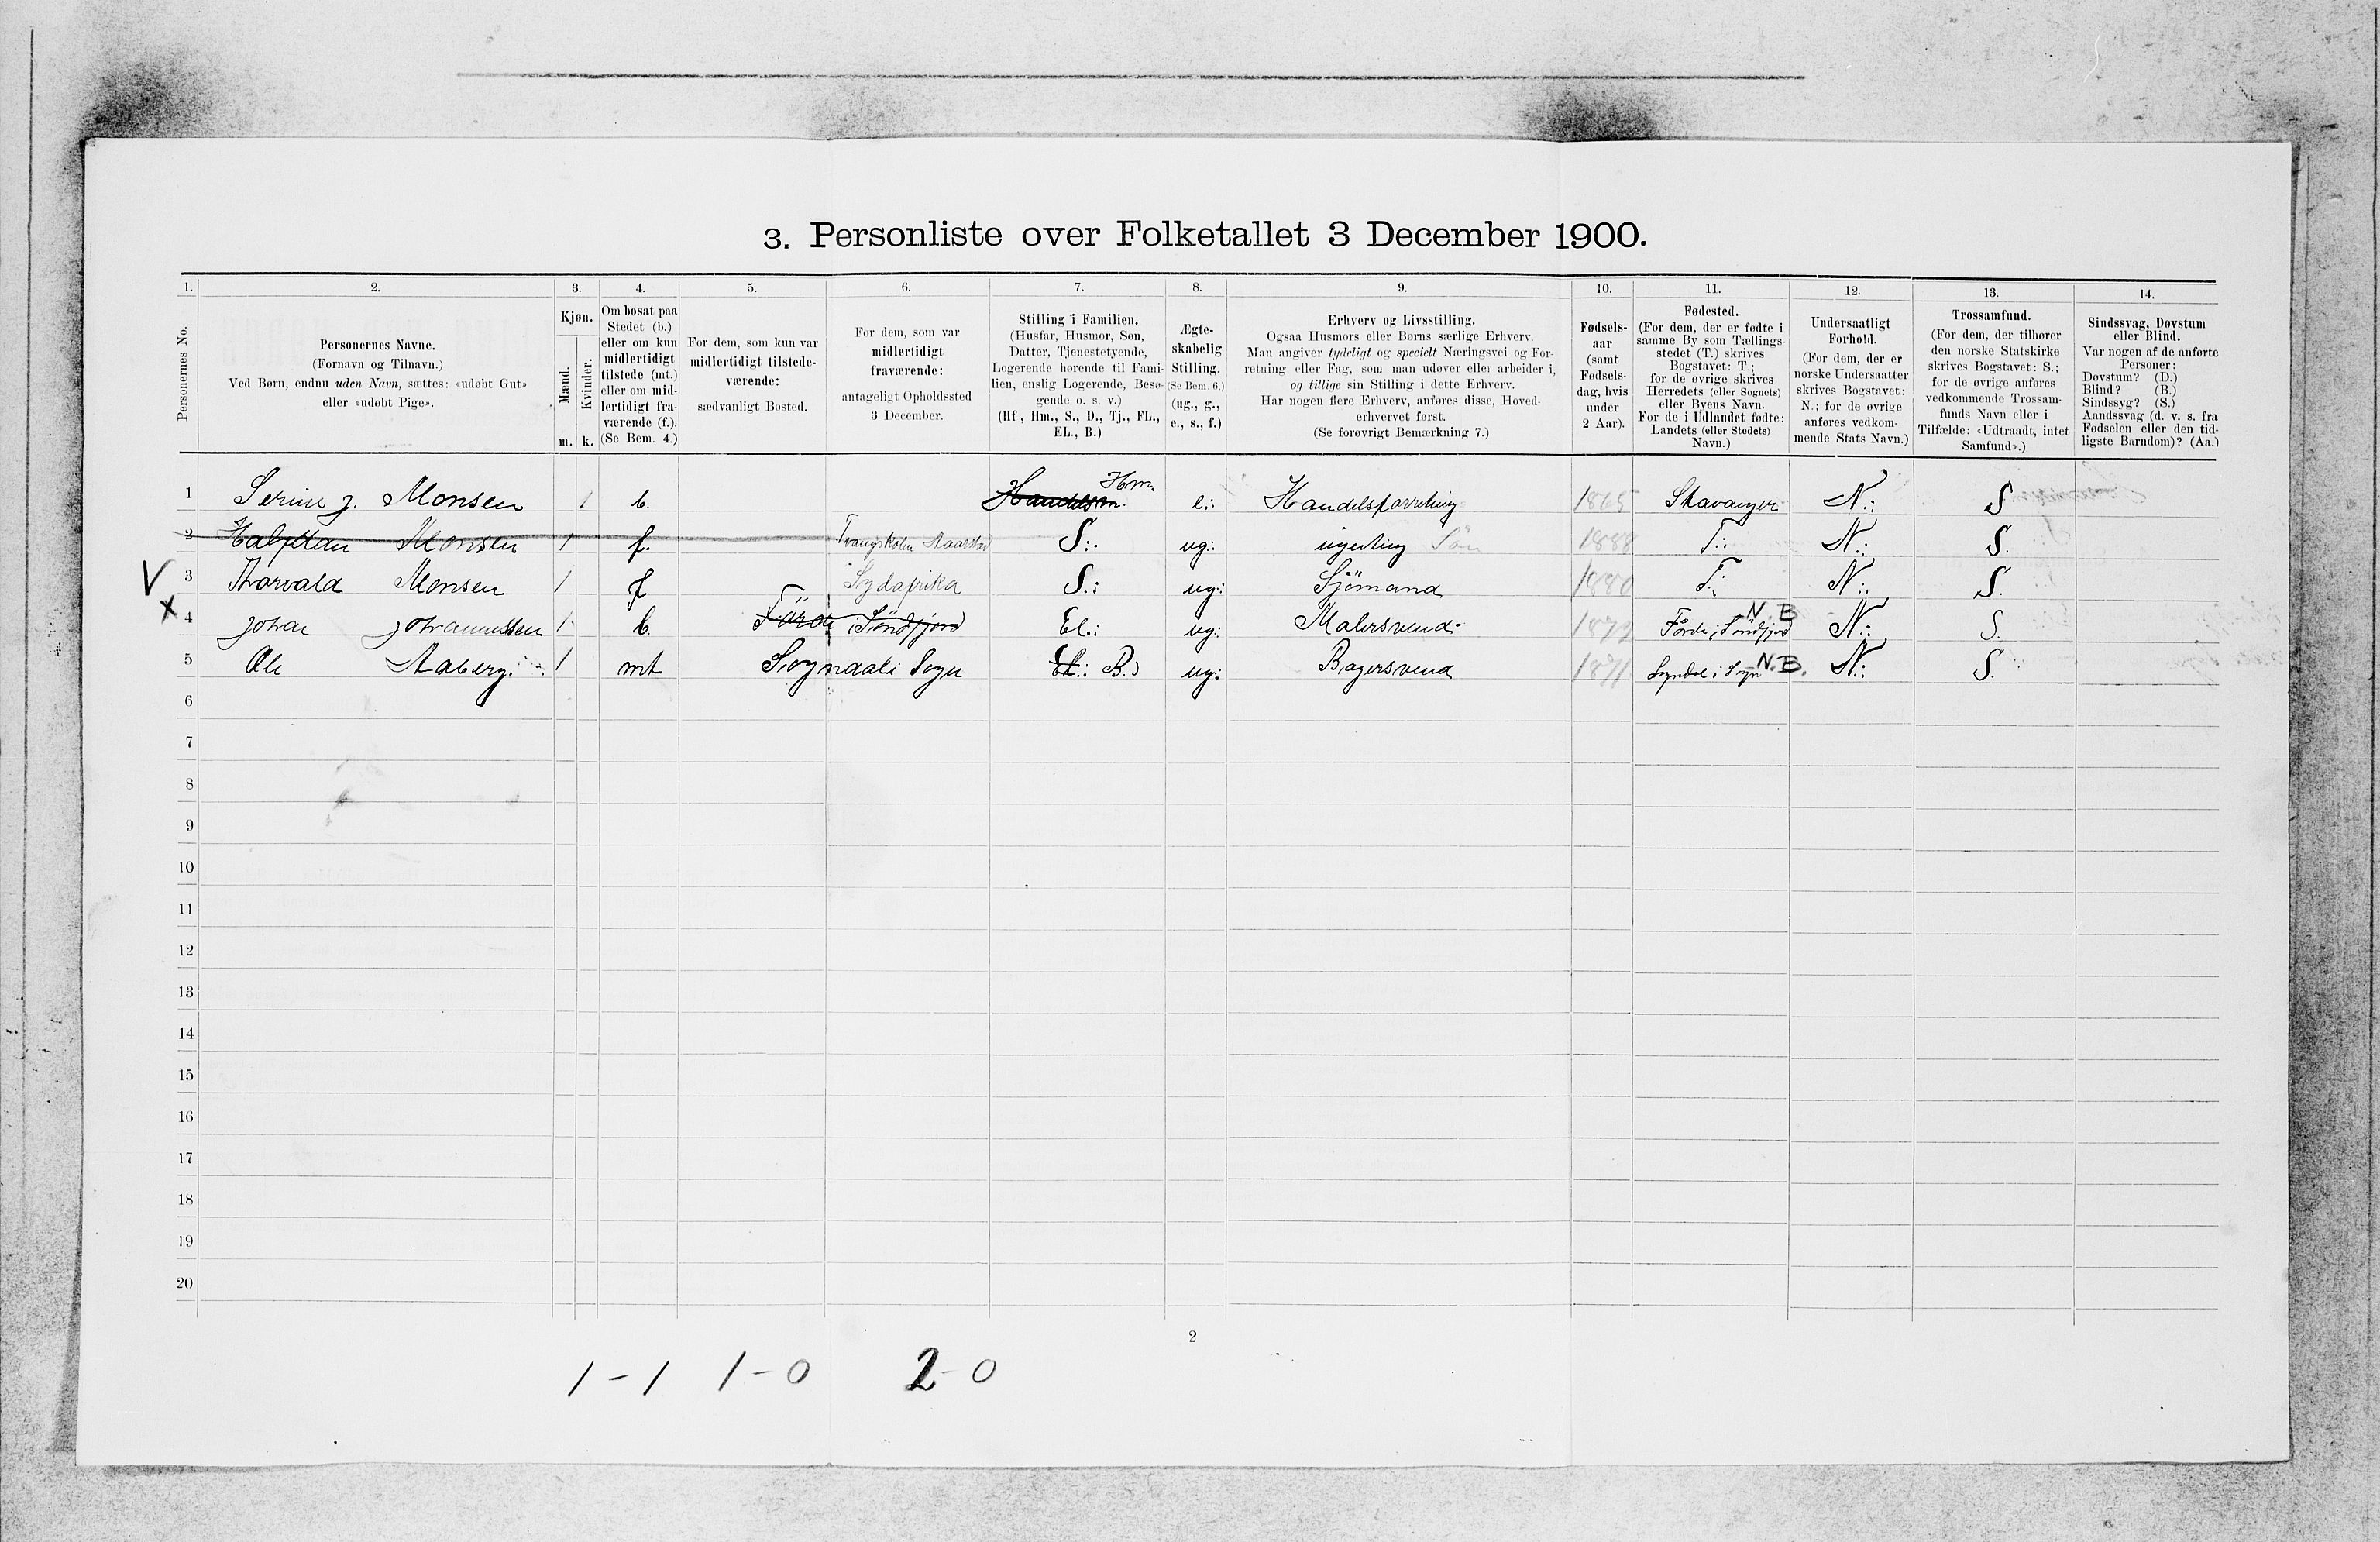 3. Personliste over Folketallet 3 December 1900.
1. 2. 3. 4. 5. 6. 7. 8. 9. 10. 11. 12. 13. 14.
Personernes No.
Personernes Navne.
(Fornavn og Tilnavn.)
Ved Børn, endnu uden Navn, sættes: «udøbt Gut»
eller «udøbt Pige».
Kjøn.
Mænd.
Kvinder.
m. k.
Om bosat paa
Stedet (b.)
eller om kun
midlertidigt
tilstede (mt.)
eller om mid-
lertidigt fra-
værende (f.).
(Se Bem. 4.)
For dem, som kun var
midlertidigt tilstede-
værende:
sædvanligt Bosted.
For dem, som var
midlertidigt
fraværende:
antageligt Opholdssted
3 December.
Stilling i Familien.
(Husfar, Husmor, Søn,
Datter, Tjenestetyende,
Logerende hørende til Fami-
lien, enslig Logerende, Besø-
gende o. s. v.)
(Hf., Hm., S., D., Tj., FL.,
EL., B.)
Ægte-
skabelig
Stilling.
(Se Bem. 6.)
(ug., g.,
e., s., f.)
Erhverv og Livsstilling.
Ogsaa Husmors eller Børns særlige Erhverv.
Man angiver tydeligt og specielt Næringsvei og For-
retning eller Fag, som man udøver eller arbeider i,
og tillige sin Stilling i dette Erhverv.
Har nogen flere Erhverv, anføres disse, Hoved-
erhvervet først.
(Se forøvrigt Bemærkning 7.)
Fødsels-
aar
(samt
Fødsels-
dag, hvis
under
2 Aar).
Fødested.
(For dem, der er fødte i
samme By som Tællings-
stedet (T.) skrives
Bogstavet: T;
for de øvrige skrives
Herredets (eller Sognets)
eller Byens Navn.
For de i Udlandet fødte:
Landets (eller Stedets)
Navn.)
Undersaatligt
Forhold.
(For dem, der er
norske Undersaatter
skrives Bogstavet:
N.; for de øvrige
anføres vedkom-
mende Stats Navn.)
Trossamfund.
(For dem, der tilhører
den norske Statskirke
skrives Bogstavet: S.;
for de øvrige anføres
vedkommende Trossam-
funds Navn eller i
Tilfælde: «Udtraadt, intet
Samfund».)
Sindssvag, Døvstum
eller Blind.
Var nogen af de anførte
Personer:
Døvstum? (D.)
Blind? (B.)
Sindssyg? (S.)
Aandssvag (d. v. s. fra
Fødselen eller den tid-
ligste Barndom)? (Aa.)
1 Serine J. Monsen 1 b. Hm. e.: Handelsforretning 1865 Stavanger N.: S
2 Halfdan Monsen 1 f. Tvangskolen Aarstad S.: ug.: Søn 1888 T.: N.: S.
V 3 Thorvald Monsen 1 f Sydafrika S.: ug: Sjömand 1880 T.: N.: S.
x 4 Johan Johannessen 1 b. Förde i Söndfjord El.: ug: Malersvend 1872 Förde i Söndfjord N B N.: S.
5 Ole Aaberg 1 mt Sogndal i Sogn El.: B.) ug: Bagersvend 1871 Sogndal i Sogn N.B. N.: S.
6
7
8
9
10
11
12
13
14
15
16
17
18
19
20
2
1-1 1-0 2-0